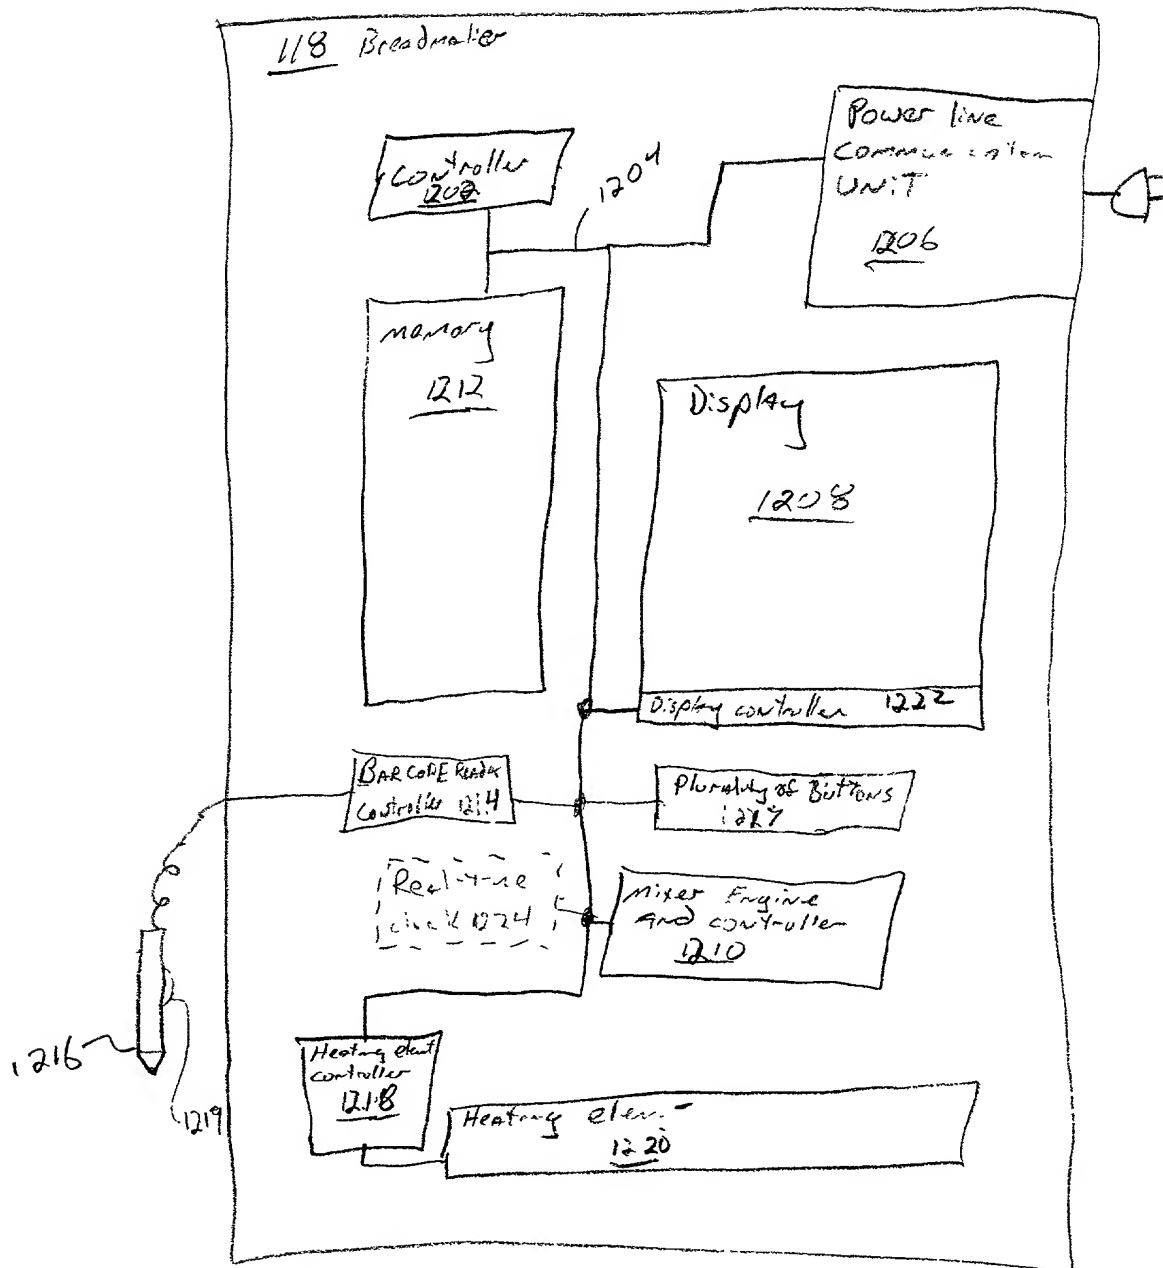 118 Breadmaker
Controller
1202
1204
Power line
Communication
UNIT
1206
memory
1212
Display
1208
Display controller 1222
BAR CODE Reader
Controller 1214
Plurality of Buttons
Real-time
clock 1224
Mixer Engine
And controller
1210
1216
1219
Heating
controller
1218
Heating
1220